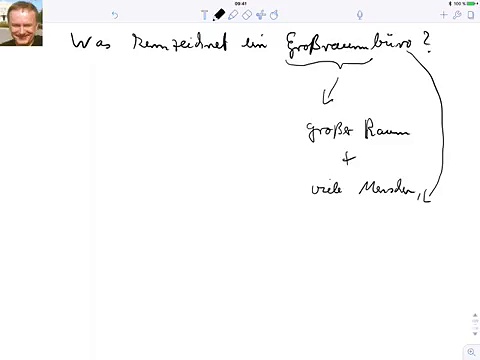 09:41
100 %
Was kennzeichnet ein Großraumbüro?
großer Raum
+
viele Menschen,